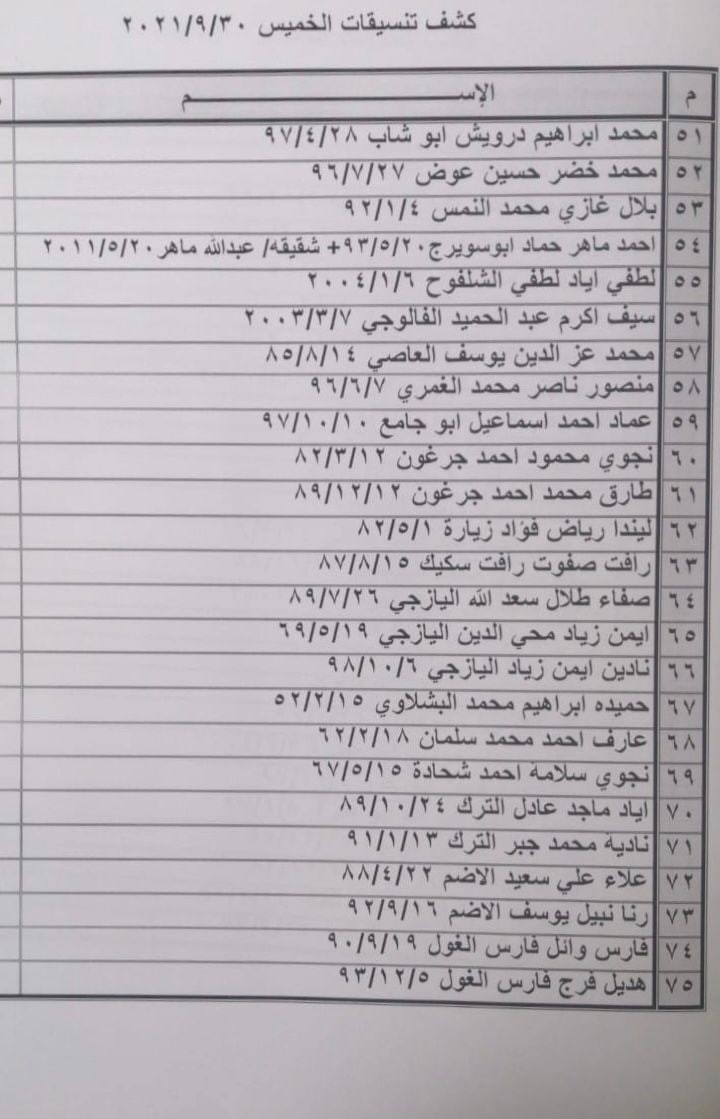 كشف تنسيقات الخميس ٢٠٢١/٩/٣٠
م الإســـــــم
٥١ محمد ابراهيم درويش ابو شاب ٩٧/٤/٢٨
٥٢ محمد خضر حسين عوض ٩٦/٧/٢٧
٥٣ بلال غازي محمد النمس ٩٢/١/٤
٥٤ احمد ماهر حماد ابوسويرج ٩٣/٥/٢٠+ شقيقه/ عبدالله ماهر ٢٠١١/٥/٢٠
٥٥ لطفي اياد لطفي الشلفوح ٢٠٠٤/١/٦
٥٦ سيف اكرم عبد الحميد الفالوجي ٢٠٠٣/٣/٧
٥٧ محمد عز الدين يوسف العاصي ٨٥/٨/١٤
٥٨ منصور ناصر محمد الغمري ٩٦/٦/٧
٥٩ عماد احمد اسماعيل ابو جامع ٩٧/١٠/١٠
٦٠ نجوي محمود احمد جرغون ٨٢/٣/١٢
٦١ طارق محمد احمد جرغون ٨٩/١٢/١٢
٦٢ ليندا رياض فؤاد زيارة ٨٢/٥/١
٦٣ رافت صفوت رافت سكيك ٨٧/٨/١٥
٦٤ صفاء طلال سعد الله اليازجي ٨٩/٧/٢٦
٦٥ ايمن زياد محي الدين اليازجي ٦٩/٥/١٩
٦٦ نادين ايمن زياد اليازجي ٩٨/١٠/٦
٦٧ حميده ابراهيم محمد البشلاوي ٥٢/٢/١٥
٦٨ عارف احمد محمد سلمان ٦٢/٢/١٨
٦٩ نجوي سلامة احمد شحادة ٦٧/٥/١٥
٧٠ اياد ماجد عادل الترك ٨٩/١٠/٢٤
٧١ نادية محمد جبر الترك ٩١/١/١٣
٧٢ علاء علي سعيد الاضم ٨٨/٤/٢٢
٧٣ رنا نبيل يوسف الاضم ٩٢/٩/١٦
٧٤ فارس وائل فارس الغول ٩٠/٩/١٩
٧٥ هديل فرج فارس الغول ٩٣/١٢/٥